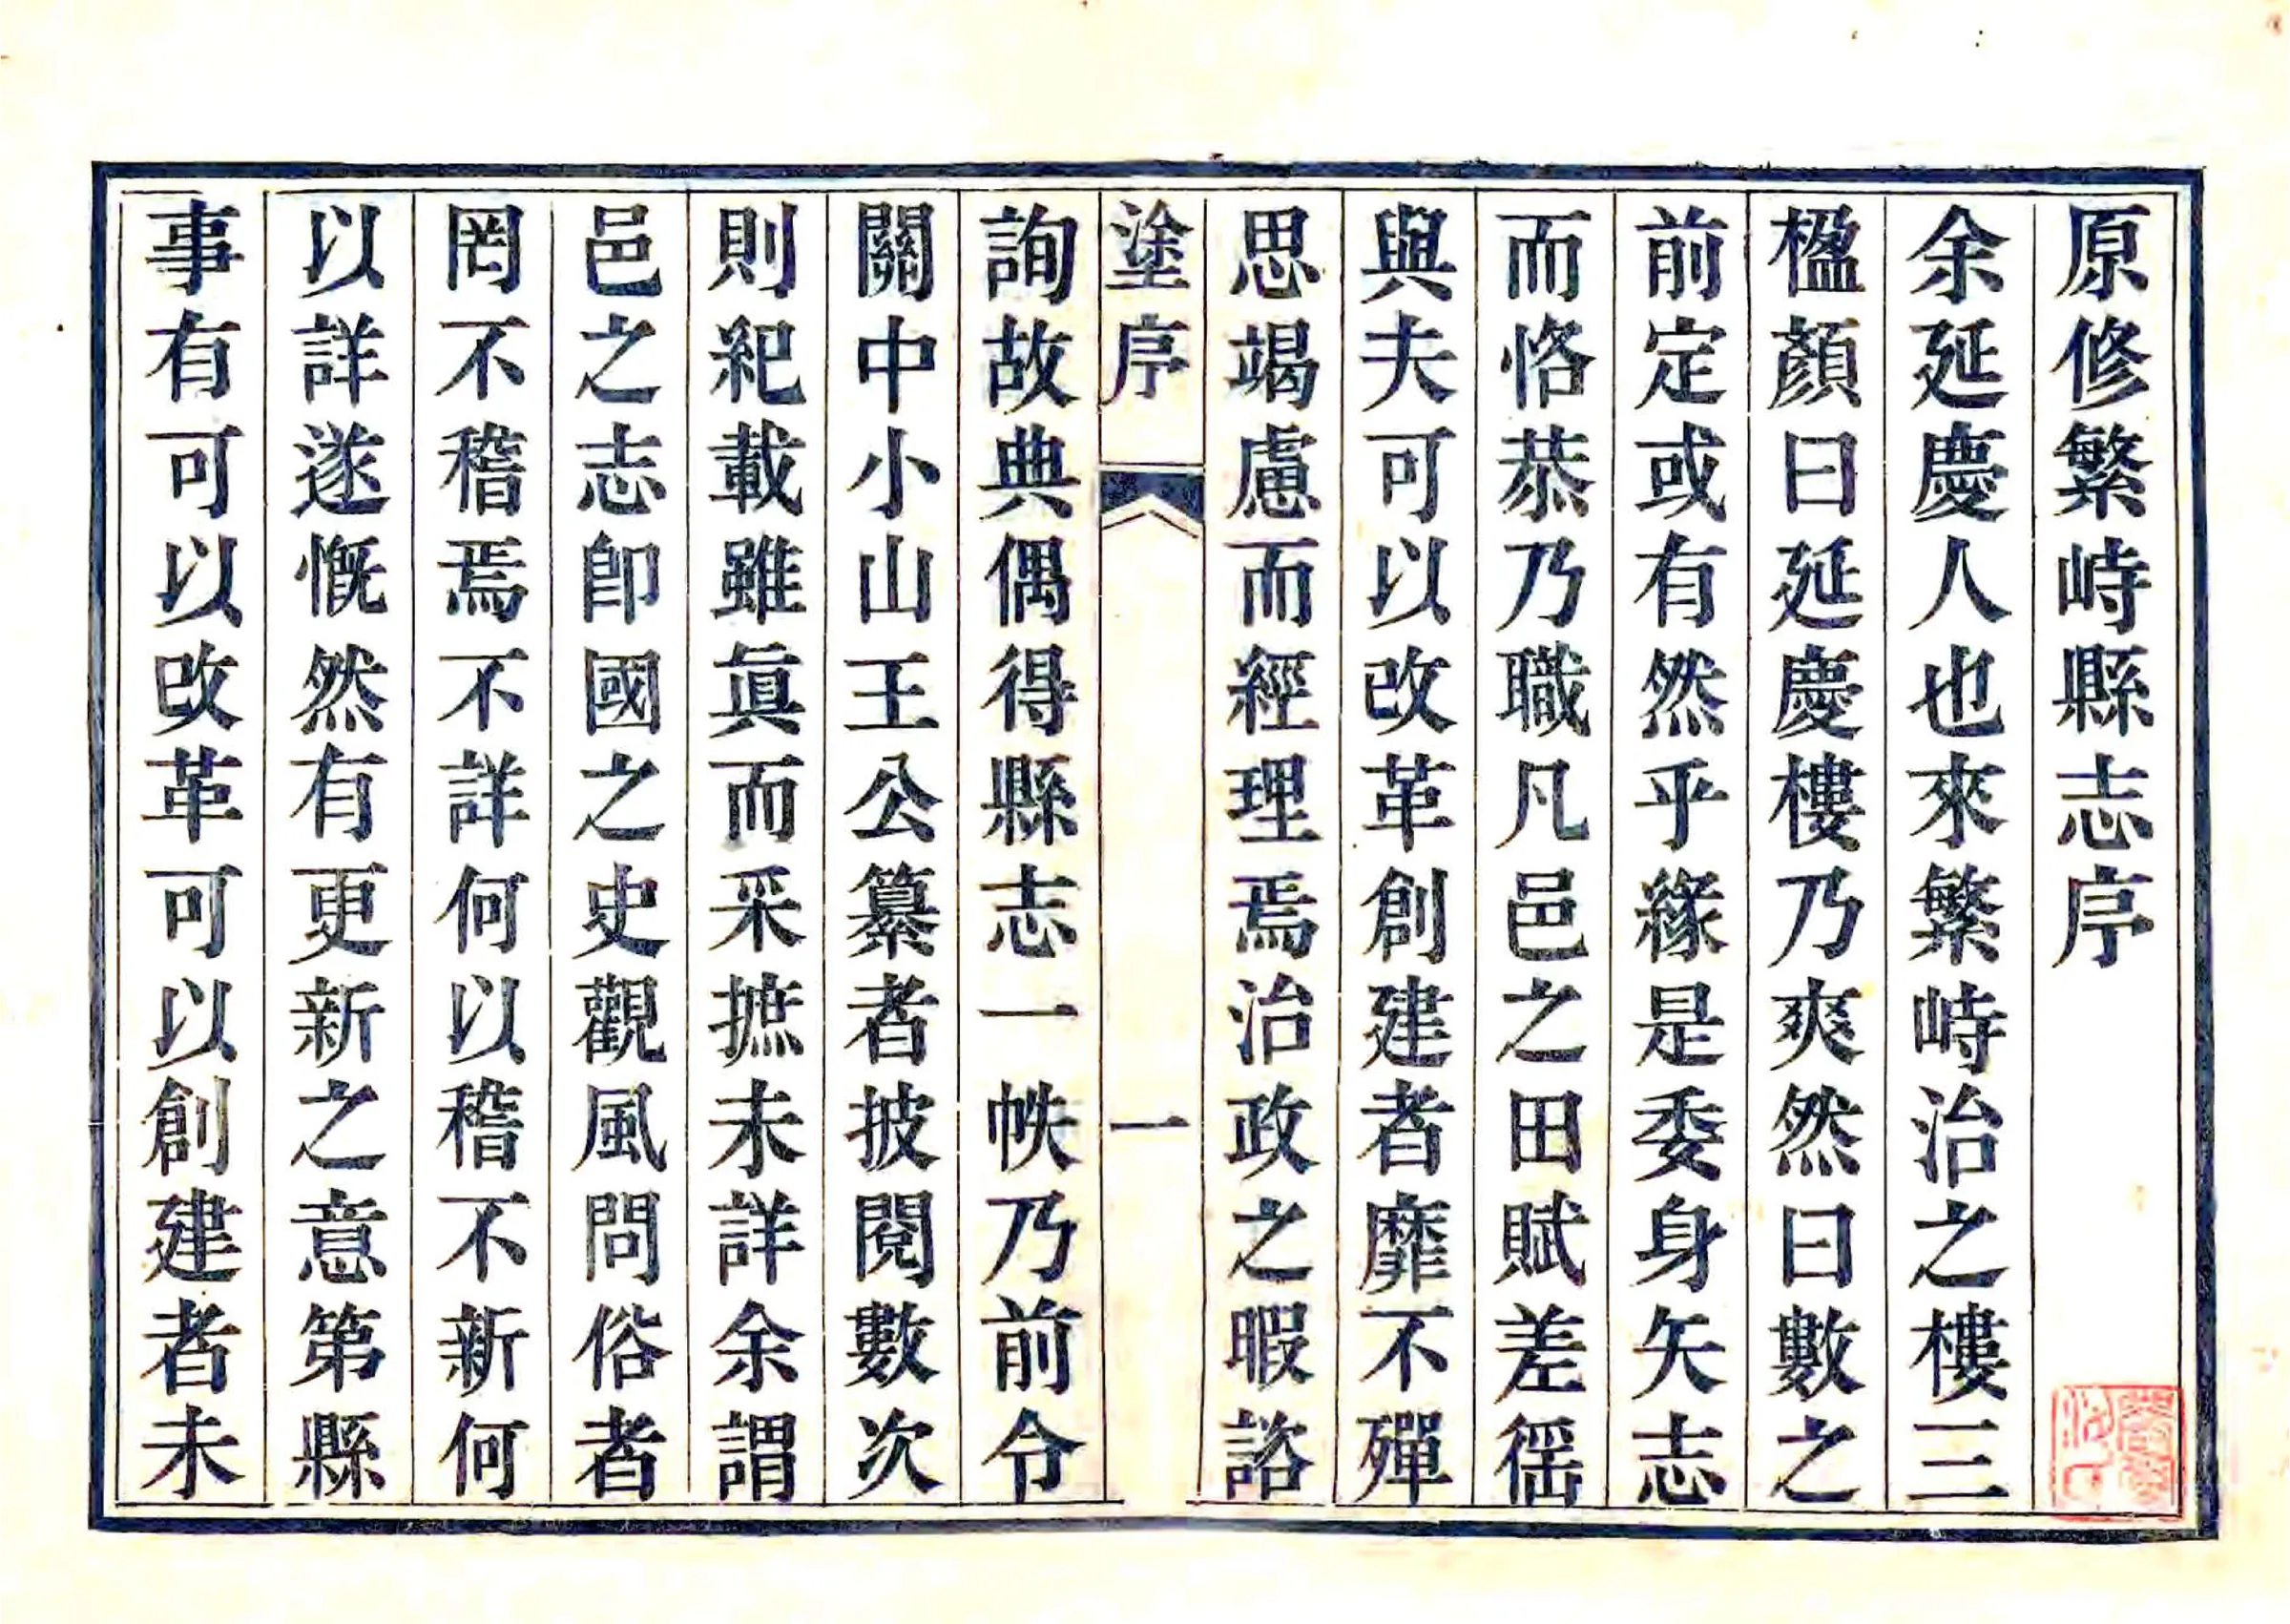 原修繁峙縣志序
余延慶人也來繁峙治之樓三
楹顏曰延慶樓乃爽然曰數之
前定或有然乎緣是委身矢志
而恪恭乃職凡邑之田賦差徭
與夫可以改革創建者靡不殫
思竭慮而經理焉治政之暇諮
塗序
一
詢故典偶得縣志一帙乃前令
關中小山王公纂者披閱數次
則紀載雖眞而采摭未詳余謂
邑之志卽國之史觀風問俗者
罔不稽焉不詳何以稽不新何
以詳遂慨然有更新之意第縣
事有可以改革可以創建者未